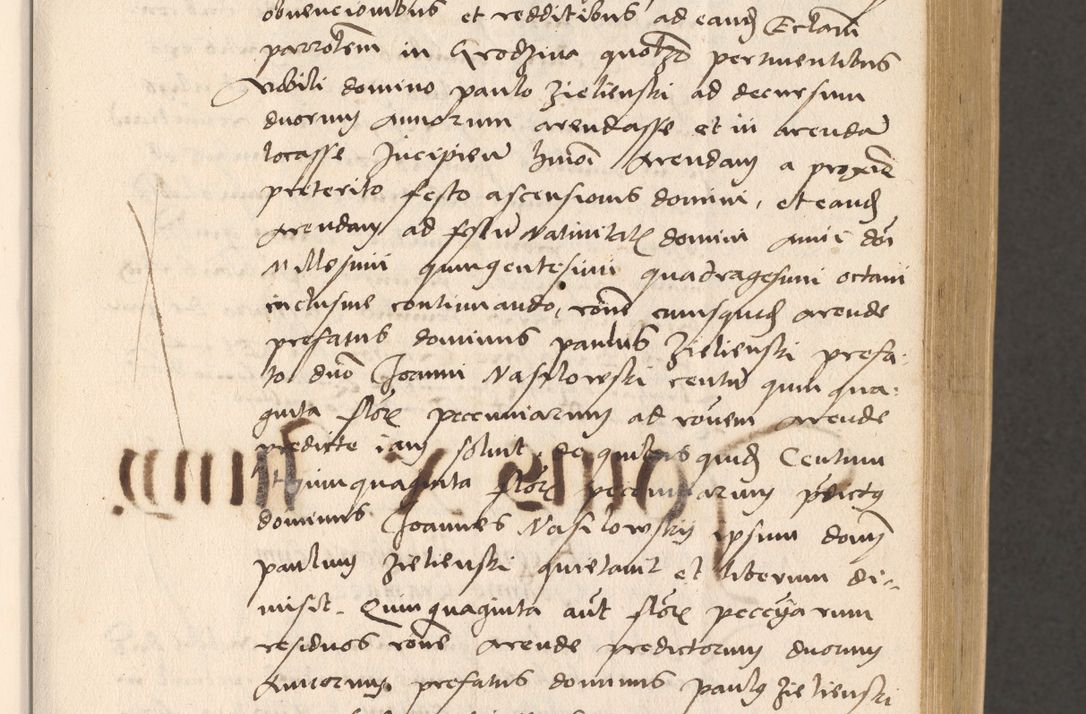 obvencionibus et redditibus ad eand Ecclam
parrolem in Grodzina quolzo pertinentibus
Nobili domino paulo Zielienski ad decursum
duorum Annorum arendasse et in arendã
locasse Incipien hmoi Arendam a proxie
preterito festo ascensionis domini, et eand
arendam ad festũ Natiuitatis domini anni doi
Millesimi quingentesimi quadragesimi octaui
inclusiue continuando, rone cuiusquid arende
prefatus dominus paulus Zielienski prefa:
to dno Joanni Nasilowski centũ quin qua:
ginta flor pecuniarum ad rõnem arende
predicte iam soluit, de quibus quid Centum
et quinquaginta flor pecuniarum pdictus
dominus Joannes Nasilowsky ipsum domĩ
paulum Zielienski quietauit et liberum di-
misit. Quinquaginta aut flor peccuarum
residuos rone arende predictorum duorum
Annorum, prefatus dominus paulus Zielienski